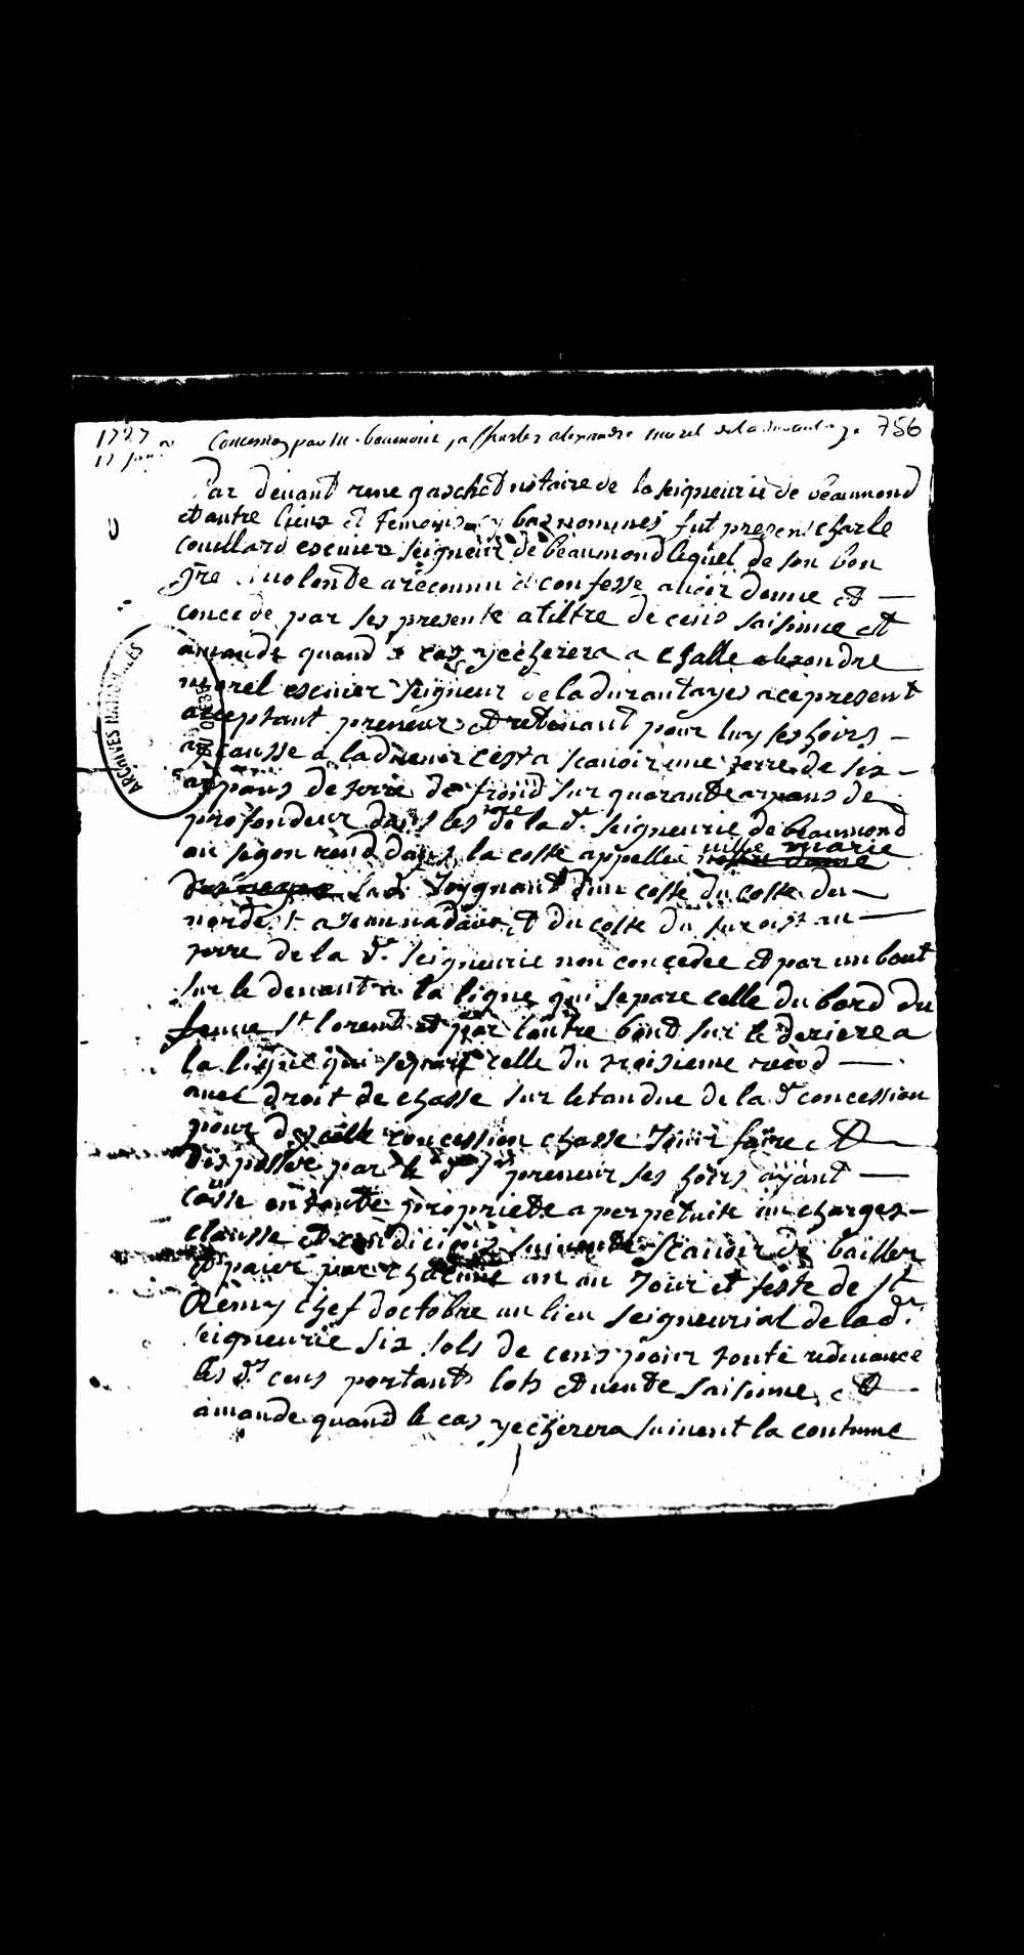 1727
Concession par Mr. beaumont, a Charles alexandre morel de la durantaye. 756
Par devant rene gaschet notaire de la seigneurie de beaumond
et autre lieux et temoins cy bas nommés fut present charle
couillard escuier seigneur de beaumond lequel de son bon
gre volonte a reconnu et confesse avoir donne et —
concede par ses presente a tiltre de cens saisinne et
amande quand le cas y echerera a challe alexandre
morel escuier seigneur de la durantaye a ce present
acceptant preneur et retenant pour luy ses hoirs —
ayt causse a ladvenir cest a scauoir une terre de six —
arpans de terre de frond sur quarante arpans de
profondeur dans les de la d. seigneurie de beaumond
au segon rend dans la coste appellee ville marie
nostre dame
la d. Joygnant d'un coste du coste du —
nordest a Jean nadaux et du coste du suroist au —
terre de la d. seigneurie non concedee et par un bout
sur le devant a la ligne qui separe celle du bord du
fleuve st lorent et par lautre bout sur le deriere a
la ligne qui separe celle du troisieme rend —
avec droit de chasse sur letandue de la d. concession
pour d'ycelle concession chasse Jouir faire et —
disposser par le d. sr preneur ses hoirs ayant —
casse en toute propriete a perpetuite au charges —
clausse et condicions suivante scauoir de bailler
et paier par chacune an au Jour et feste de st
Remy chef doctobre au lieu seigneurial de la d.
seigneurie six sols de cens pour toute redevance
les ds. cens portants lots et vente saisinne et —
amande quand le cas y echerera suivent la coutume
ARCHIVES NATIONALES
DU QUÉBEC